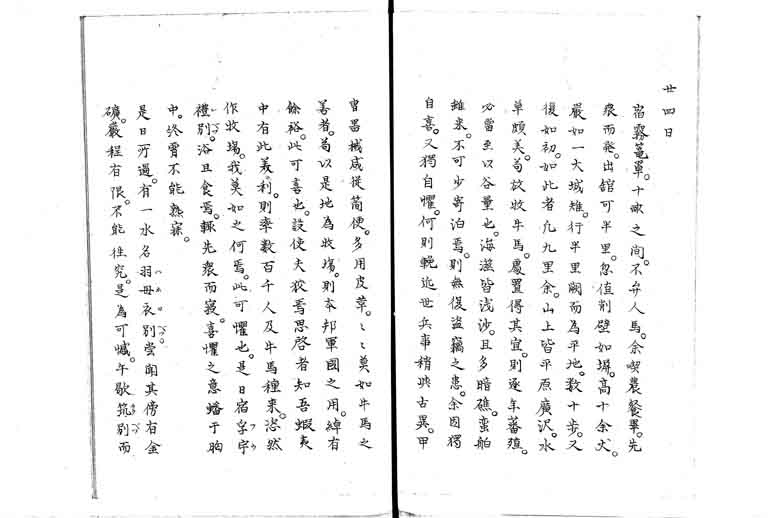 廿四日
宿霧篭罩。十畝之間。不弁人馬。余喫晨餐畢。先
衆而発。出舘可半里。忽値削壁如塀。高十余丈。
厳如一大城雉。行半里闕而為平地。数十歩。又
復如初。如此者凡九里余。山上皆平原廣沢。水
草頗美。苟放牧牛馬。處置得其宜。則逐年蕃殖。
必當至以谷量也。海滋皆浅沙。且多暗礁。蛮舶
雖来。不可少寄泊焉。則無復盗竊之患。余因獨
自喜。又獨自懼。何則輓近世兵事稍与古異。甲
冑器械咸従簡便。多用皮革。々々莫如牛馬之
善者。苟以是地為牧場。則本邦軍國之用。綽有
餘裕。此可喜也。設使夫狄焉思啓者知吾蝦夷
中有此美利。則率数百千人及牛馬種来。恣然
作牧場。我莫如之何焉。此可懼也。是日宿孚宇
禮別。浴且食焉。輙先衆而寝。喜懼之意蟠于胸
中。終宵不能熟寐。
是日所過。有一水名羽毋衣別。嘗聞其傍有金
礦。嚴程有限。不能往究。是為可憾。午歇筑別而